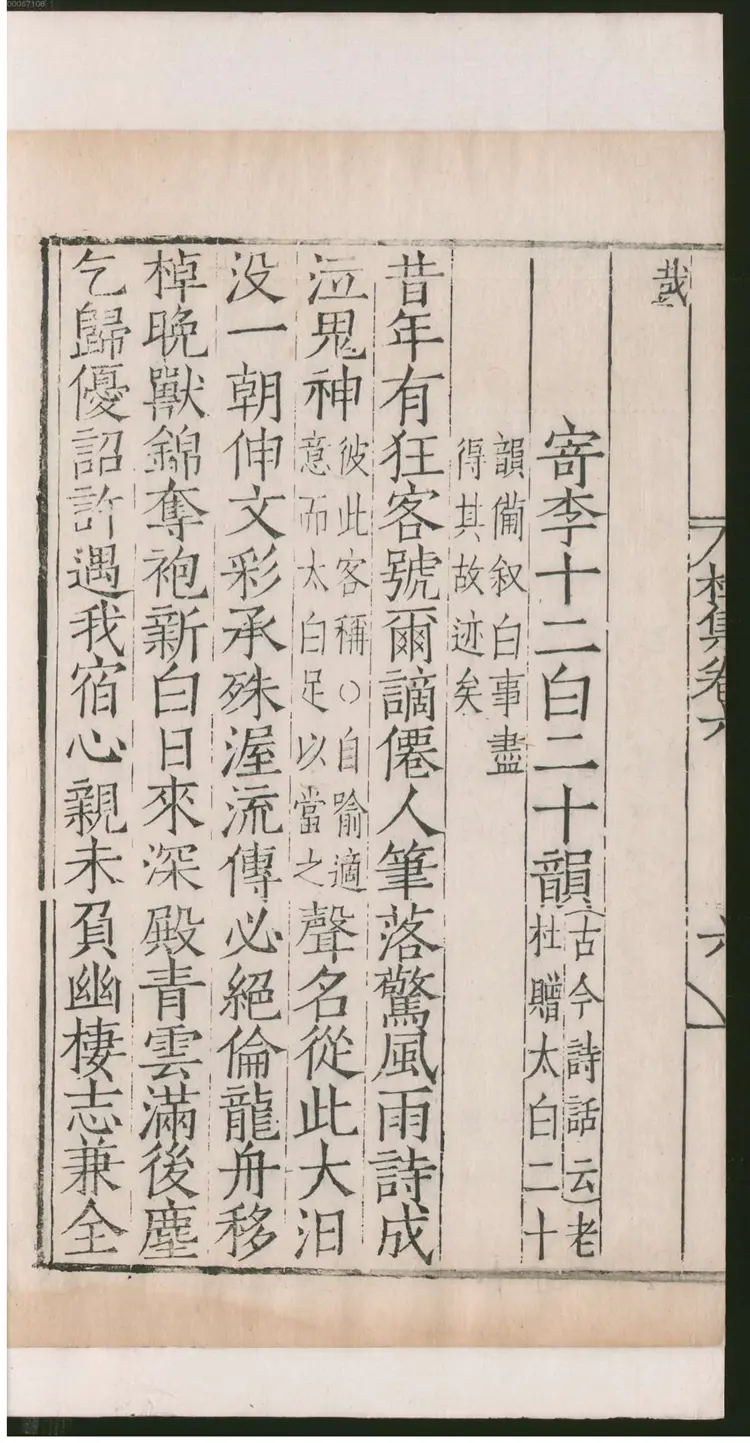 哉
寄李十二白二十韻(古今詩話云)老
杜贈太白二十
韻備叙白事盡
得其故迹矣
昔年有狂客號爾謫僊人筆落驚風雨詩成
泣鬼神彼此客稱○自踰適
意而太白足以當之聲名從此大汨
没一朝伸文彩承殊渥流傳必絕倫龍舟移
棹晚獸錦奪袍新白日來深殿青雲滿後塵
乞歸優詔許遇我宿心親未負幽棲志兼全
六
00067108